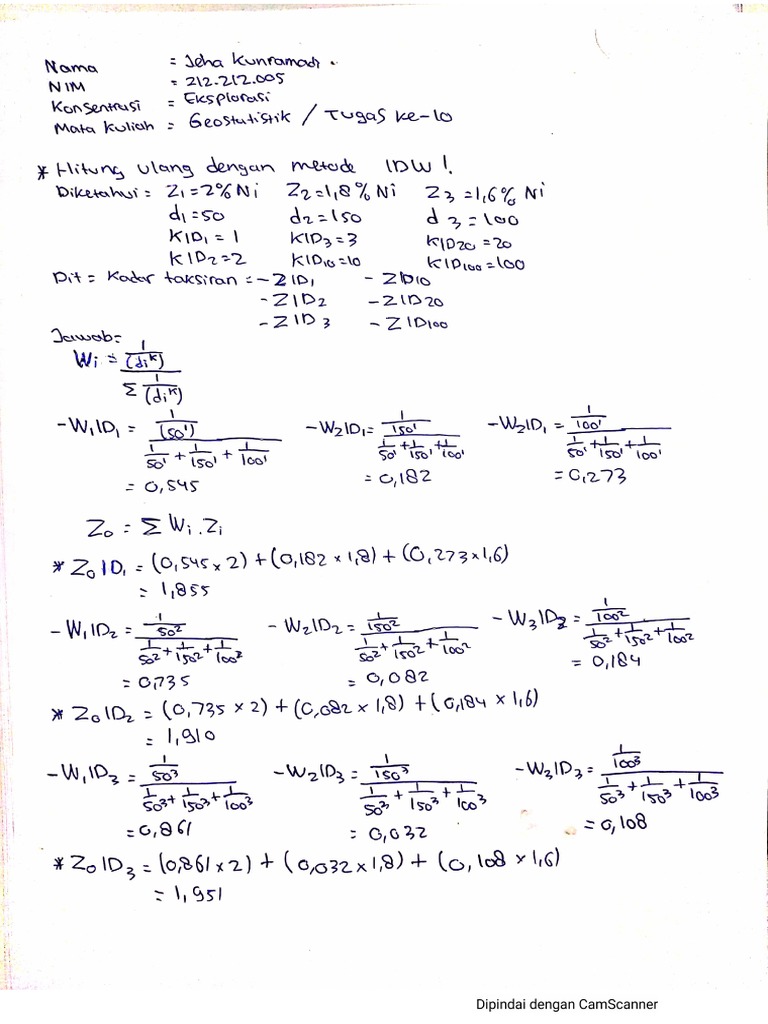 Nama = Jeha Kunramadi.
NIM = 212.212.005
Konsentrasi = Eksplorasi
Mata kuliah = Geostatistik / Tugas ke-10
* Hitung ulang dengan metode IDW!
Diketahui = Z₁=2% Ni Z₂=1,8% Ni Z₃=1,6% Ni
d₁=50 d₂=150 d₃=100
KID₁=1 KID₃=3 KID₂₀=20
KID₂=2 KID₁₀=10 KID₁₀₀=100
Dit = Kadar taksiran = -ZID₁ - ZID₁₀
-ZID₂ -ZID₂₀
-ZID₃ -ZID₁₀₀
Jawab =
Wi = (1/(di^k)) / (Σ 1/(di^k))
-W₁ID₁ = (1/(50¹)) / (1/50¹ + 1/150¹ + 1/100¹) -W₂ID₁ = (1/150¹) / (1/50¹ + 1/150¹ + 1/100¹) -W₂ID₁ = (1/100¹) / (1/50¹ + 1/150¹ + 1/100¹)
= 0,545 = 0,182 = 0,273
Z₀ = Σ Wi.Zi
* Z₀ID₁ = (0,545 × 2) + (0,182 × 1,8) + (0,273 × 1,6)
= 1,855
-W₁ID₂ = (1/50²) / (1/50² + 1/150² + 1/100²) -W₂ID₂ = (1/150²) / (1/50² + 1/150² + 1/100²) -W₃ID₂ = (1/100²) / (1/50² + 1/150² + 1/100²)
= 0,735 = 0,082 = 0,184
* Z₀ID₂ = (0,735 × 2) + (0,082 × 1,8) + (0,184 × 1,6)
= 1,910
-W₁ID₃ = (1/50³) / (1/50³ + 1/150³ + 1/100³) -W₂ID₃ = (1/150³) / (1/50³ + 1/150³ + 1/100³) -W₃ID₃ = (1/100³) / (1/50³ + 1/150³ + 1/100³)
= 0,861 = 0,032 = 0,108
* Z₀ID₃ = (0,861 × 2) + (0,032 × 1,8) + (0,108 × 1,6)
= 1,951
Dipindai dengan CamScanner